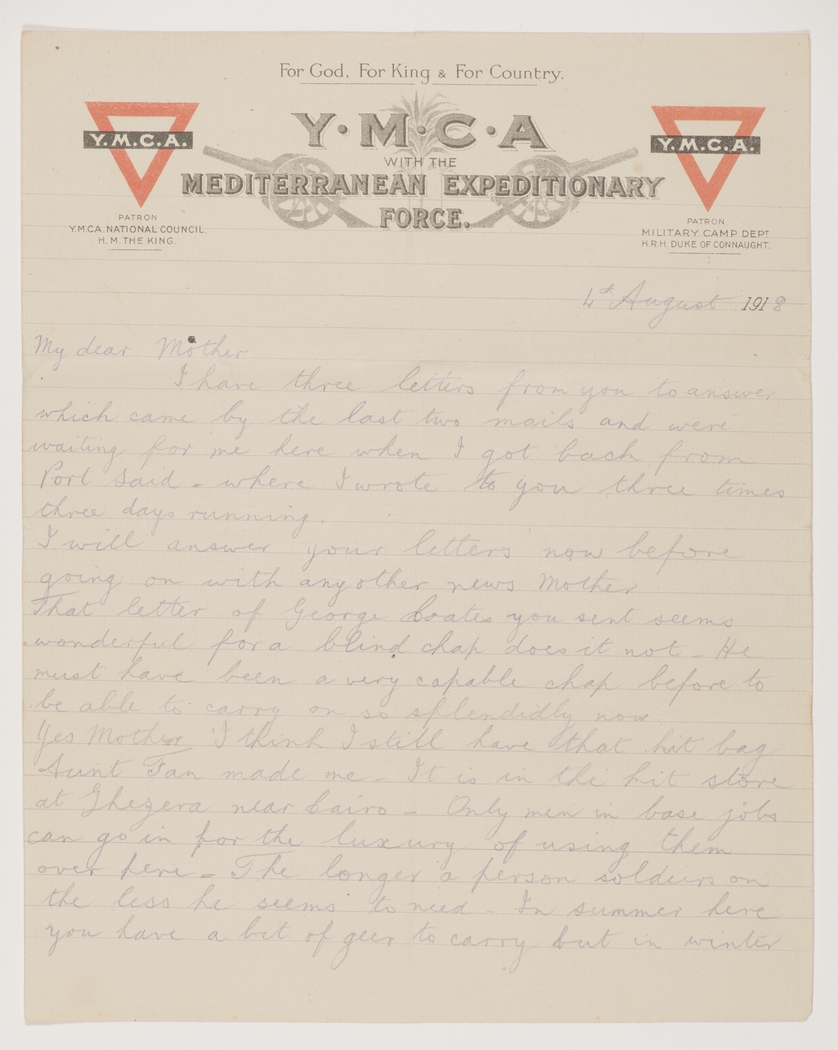 For God, For King & For Country.
Y.M.C.A
WITH THE
MEDITERRANEAN EXPEDITIONARY
FORCE.
Y.M.C.A.
PATRON
Y.M.C.A. NATIONAL COUNCIL.
H.M. THE KING.
Y.M.C.A.
PATRON
MILITARY CAMP DEPT
H.R.H. DUKE OF CONNAUGHT.
4th August 1918
My dear Mother
I have three letters from you to answer
which came by the last two mails and were
waiting for me here when I got back from
Port Said - where I wrote to you three times
three days running.
I will answer your letters now before
going on with any other news Mother
That letter of George Coates you sent seems
wonderful for a blind chap does it not - He
must have been a very capable chap before to
be able to carry on so splendidly now.
Yes Mother I think I still have that kit bag
Aunt Fan made me - It is in the kit store
at Ghezera near Cairo - Only men in base jobs
can go in for the luxury of using them
over here - The longer a person soldiers on
the less he seems to need - In summer here
you have a bit of geer to carry but in winter